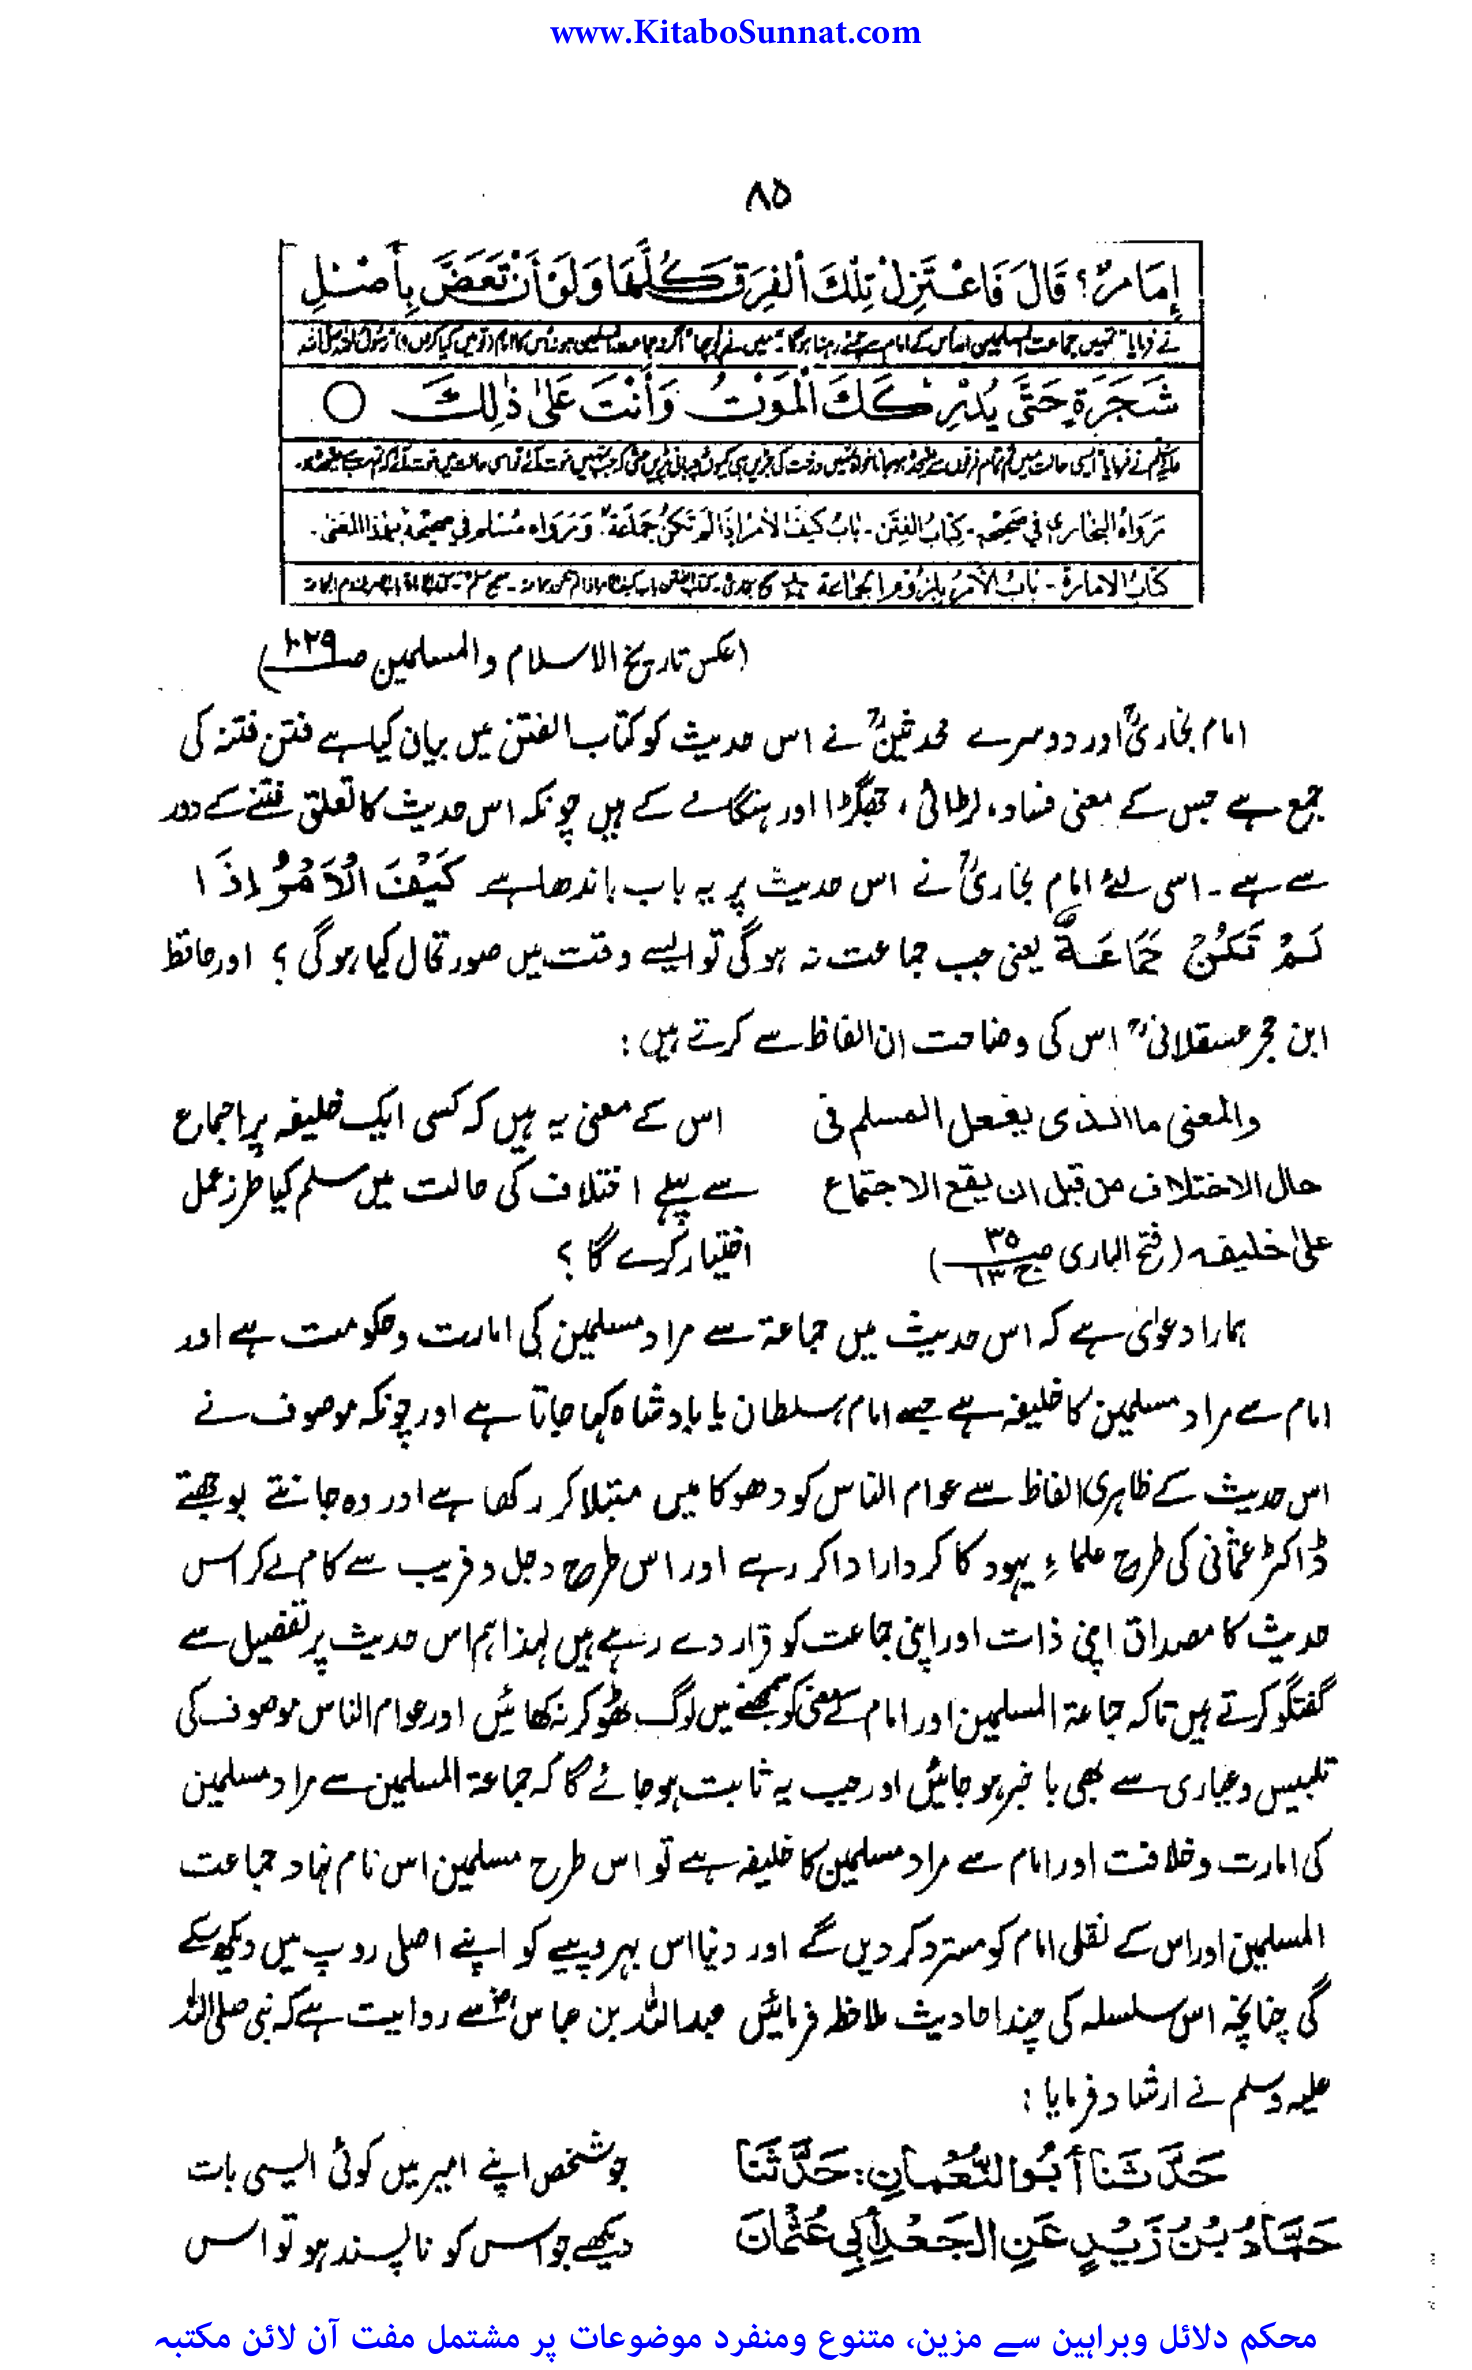 www.KitaboSunnat.com
۸۵
إِمَامٌ؟ قَالَ فَاعْتَزِلْ تِلْكَ الْفِرَقَ كُلَّهَا وَلَوْ أَنْ تَعَضَّ بِأَصْلِ
نے فرمایا "تمہیں جماعت المسلمین اور اس کے امام سے چمٹے رہنا ہوگا۔" میں نے پوچھا "اگر
شَجَرَةٍ حَتَّى يُدْرِكَكَ الْمَوْتُ وَأَنْتَ عَلَىٰ ذٰلِكَ ○
علیہ وسلم نے فرمایا "ایسی حالت میں تم تمام فرقوں سے علیٰحدہ ہو جانا خواہ تمہیں درخت کی جڑیں ہی کیوں نہ چبانی پڑیں حتی کہ جب تمہیں موت آئے تو اسی حالت میں موت آئے کہ تم سب سے علیٰحدہ ہو۔
رَوَاهُ الْبُخَارِيُّ فِي صَحِيْحِهٖ ۔ كِتَابُ الْفِتَنِ ۔ بَابُ كَيْفَ الْأَمْرُ إِذَا لَمْ تَكُنْ جَمَاعَةٌ۔ وَرَوَاهُ مُسْلِمٌ فِي صَحِيْحِهٖ بِهٰذَا الْمَعْنٰى۔
كِتَابُ الْاِمَارَةِ ۔ بَابُ الْأَمْرِ بِلُزُوْمِ الْجَمَاعَةِ
(عکس تاریخ الاسلام والمسلمین ص)
امام بخاریؒ اور دوسرے محدثینؒ نے اس حدیث کو کتاب الفتن میں بیان کیا ہے فتن فتنہ کی
جمع ہے جس کے معنی فساد، لڑائی، جھگڑا اور ہنگامے کے ہیں چونکہ اس حدیث کا تعلق فتنے کے دور
سے ہے۔ اسی لئے امام بخاریؒ نے اس حدیث پر یہ باب باندھا ہے كَيْفَ الْاَمْرُ إِذَا
لَمْ تَكُنْ جَمَاعَةٌ یعنی جب جماعت نہ ہوگی تو ایسے وقت میں صورتحال کیا ہوگی؟ اور حافظ
ابن حجر عسقلانیؒ اس کی وضاحت ان الفاظ سے کرتے ہیں:
والمعنى ما الذى يفعل المسلم فى اس کے معنی یہ ہیں کہ کسی ایک خلیفہ پر اجماع
حال الاختلاف من قبل ان يقع الاجتماع سے پہلے اختلاف کی حالت میں مسلم کیا طرز عمل
علىٰ خليفه (فتح الباری ص ۳۵ ج ۱۳) اختیار کرے گا؟
ہمارا دعوٰی ہے کہ اس حدیث میں جماعۃ سے مراد مسلمین کی امارت وحکومت ہے اور
امام سے مراد مسلمین کا خلیفہ ہے جسے امام، سلطان یا بادشاہ کہا جاتا ہے اور چونکہ موصوف نے
اس حدیث کے ظاہری الفاظ سے عوام الناس کو دھوکا میں مبتلا کر رکھا ہے اور وہ جانتے بوجھتے
ڈاکٹر عثمانی کی طرح علماء یہود کا کردار ادا کر رہے اور اس طرح دجل وفریب سے کام لے کر اس
حدیث کا مصداق اپنی ذات اور اپنی جماعت کو قرار دے رہے ہیں لہذا ہم اس حدیث پر تفصیل سے
گفتگو کرتے ہیں تاکہ جماعۃ المسلمین اور امام کے معنی کو سمجھنے میں لوگ ٹھوکر نہ کھائیں اور عوام الناس موصوف کی
تلبیس وعیاری سے بھی باخبر ہو جائیں اور جب یہ ثابت ہو جائے گا کہ جماعۃ المسلمین سے مراد مسلمین
کی امارت وخلافت اور امام سے مراد مسلمین کا خلیفہ ہے تو اس طرح مسلمین اس نام نہاد جماعت
المسلمین اور اس کے نقلی امام کو مسترد کر دیں گے اور دنیا اس بہروپیے کو اپنے اصلی روپ میں دیکھ سکے
گی چنانچہ اس سلسلہ کی چند احادیث ملاحظہ فرمائیں عبداللہ بن عباسؓ سے روایت ہے کہ نبی صلی اللہ
علیہ وسلم نے ارشاد فرمایا:
حَدَّثَنَا أَبُو النُّعْمَانِ: حَدَّثَنَا جو شخص اپنے امیر میں کوئی ایسی بات
حَمَّادُ بْنُ زَيْدٍ عَنِ الْجَعْدِ أَبِي عُثْمَانَ دیکھے جو اس کو ناپسند ہو تو اس
محکم دلائل وبراہین سے مزین، متنوع ومنفرد موضوعات پر مشتمل مفت آن لائن مکتبہ